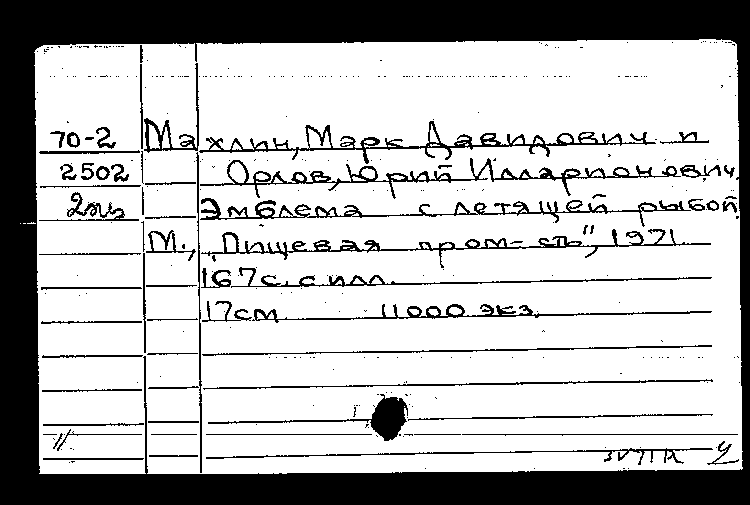 70-2 Махлин, Марк Давидович и
2502 Орлов, Юрий Илларионович.
2экз Эмблема с летящей рыбой.
М., „Пищевая пром-сть", 1971
167с. с илл.
17см 11000 экз.